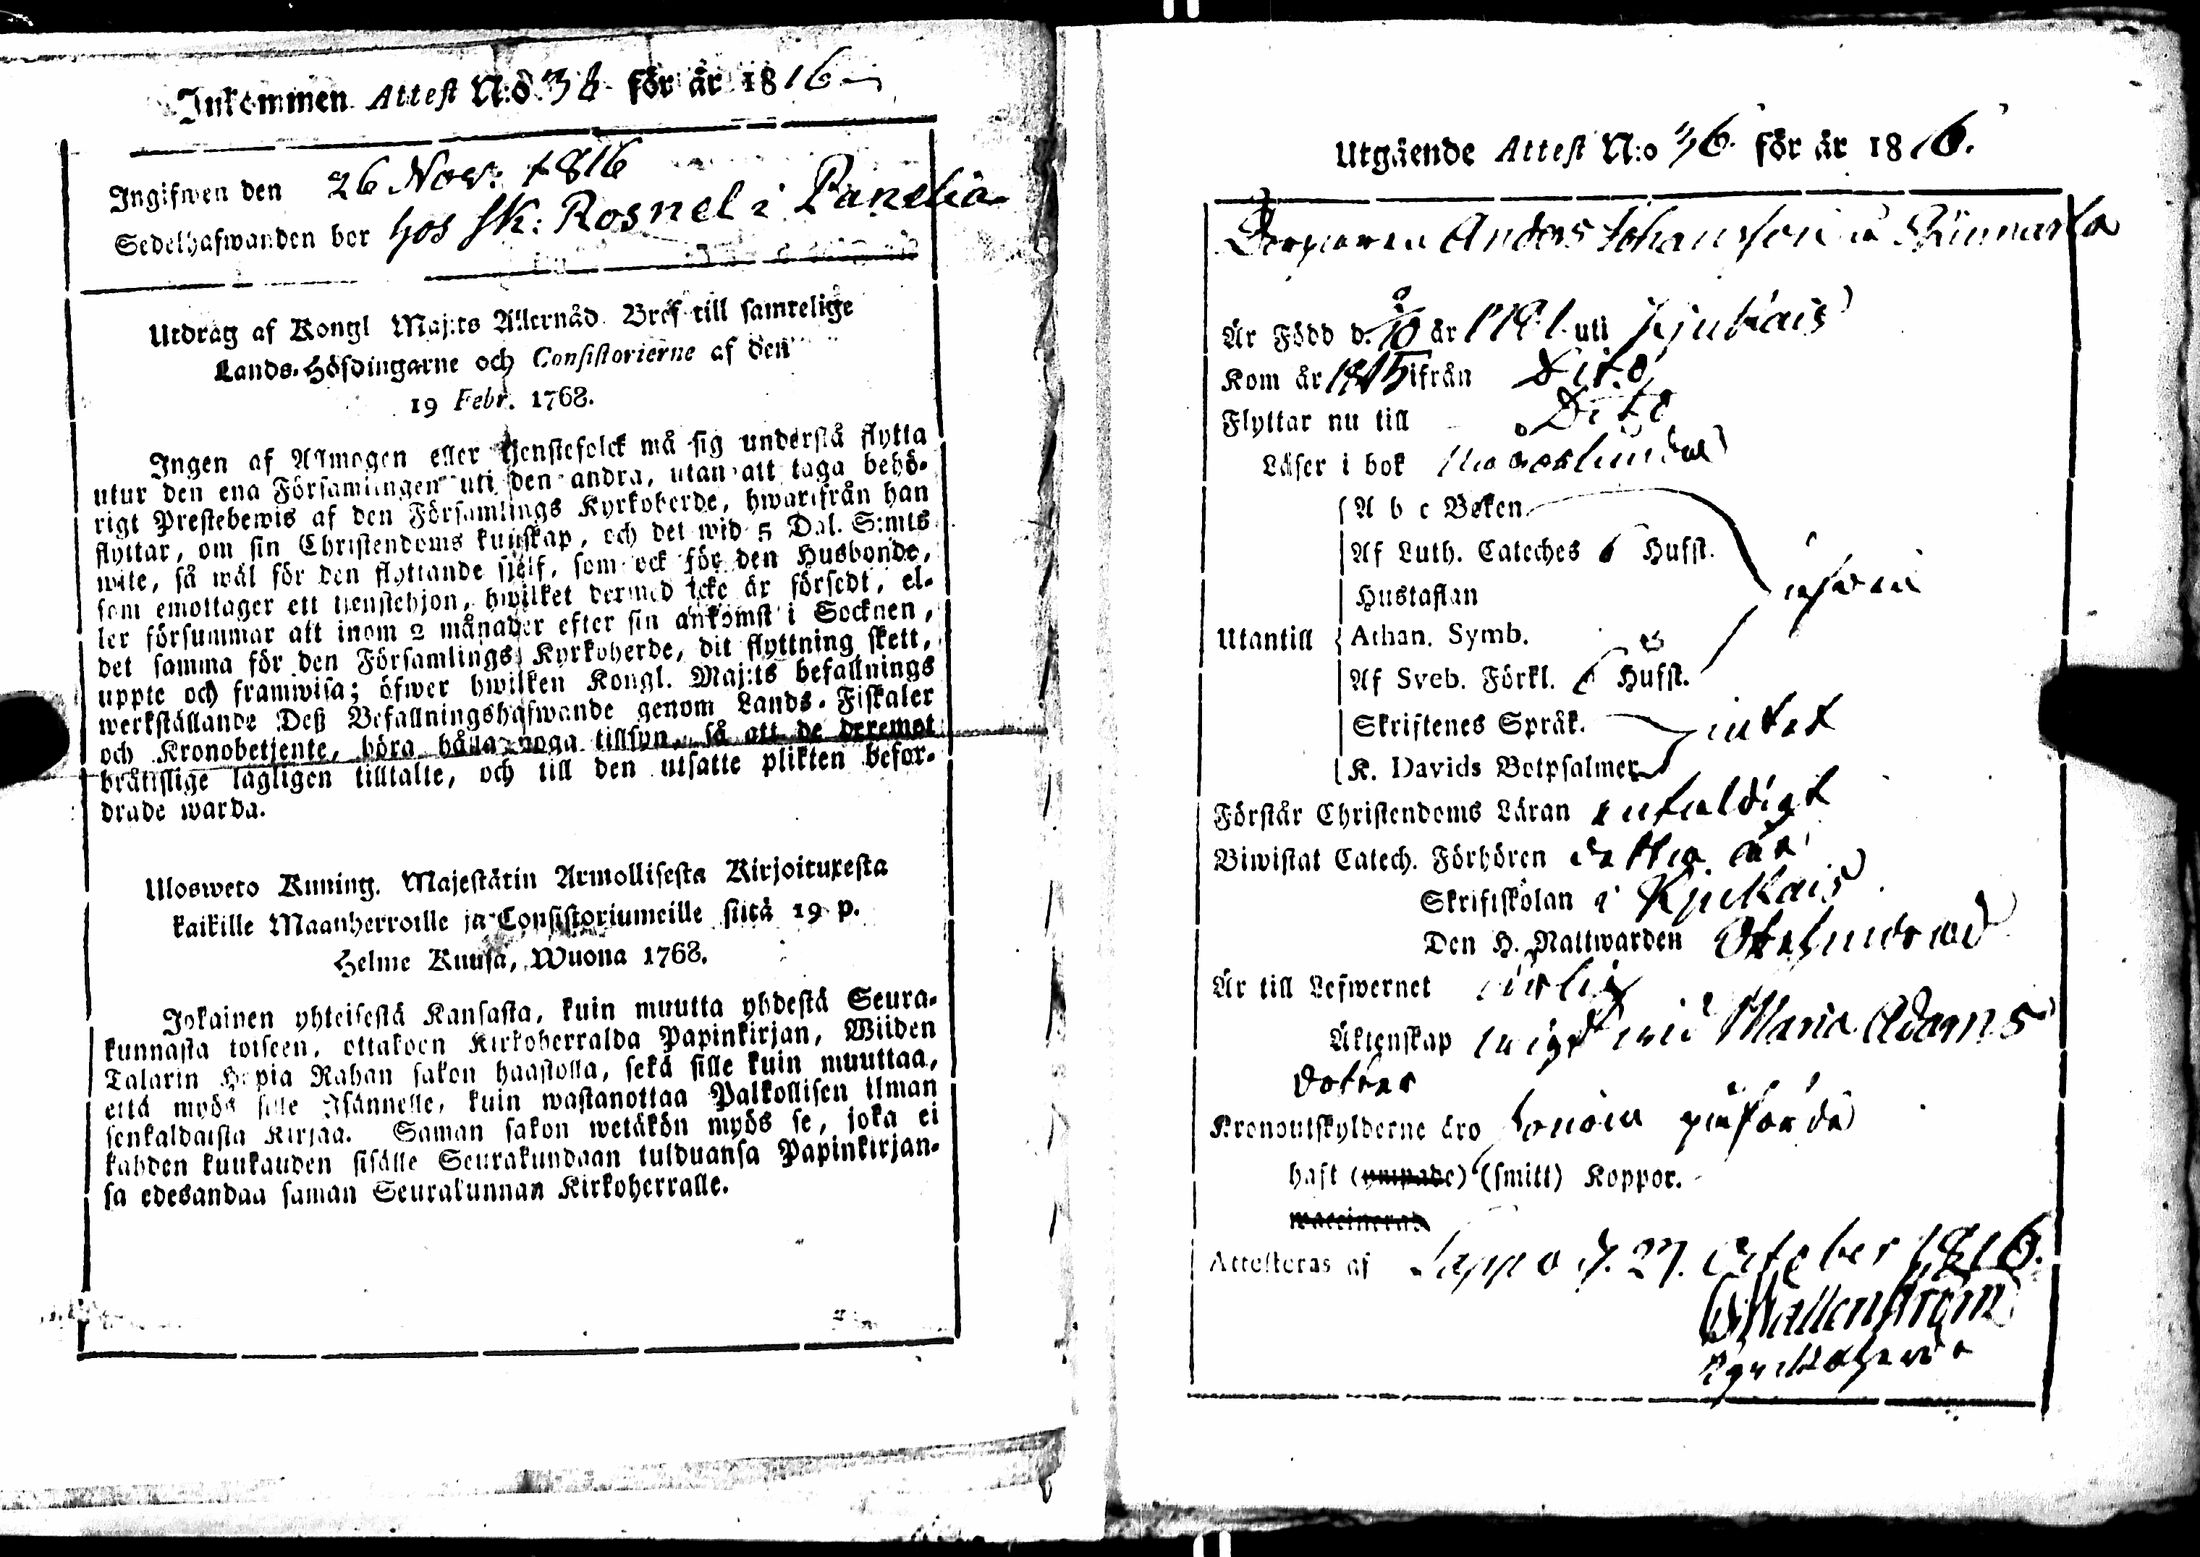 Inkommen Attest N:o 38 för år 1816
Ingifwen den 26 Nov: 1816
Sedelhafwanden bor hos Sk: Rosnel i Panelia
Utdrag af Kongl Maj:ts Allernåd. Bref till samtelige
Lands-Höfdingarne och Consistorierne af den
19 Febr. 1768.
Ingen af Allmogen eller tjenstefolck må sig understå flytta
utur den ena Församlingen uti den andra, utan att taga behö-
rigt Prestebewis af den Församlings Kyrkoherde, hwarifrån han
flyttar, om sin Christendoms kunskap, och det wid 5 Dal. S:mts
wite, så wäl för den flyttande sjelf, som ock för den Husbonde,
som emottager ett tjenstehjon, hwilket dermed icke är försedt, el-
ler försummar att inom 2 månader efter sin ankomst i Socknen,
det samma för den Församlings Kyrkoherde, dit flyttning skett,
uppte och framwisa; öfwer hwilken Kongl. Maj:ts befallnings
werkställande Deß Befallningshafwande genom Lands-Fiskaler
och Kronobetjente, böra hålla noga tillsyn, så att de deremot
bråttslige lagligen tilltalte, och till den utsatte plikten befor-
drade warda.
Ulosweto Kuning. Majestätin Armollisesta Kirjoituxesta
kaikille Maanherroille ja Consistoriumeille siitä 19 p.
Helme Kuusa, Wuona 1768.
Jokainen yhteisestä Kansasta, kuin muutta yhdestä Seura-
kunnasta toiseen, ottakoen Kirkoherralda Papinkirjan, Wiiden
Talarin Hopia Rahan sakon haastolla, sekä sille kuin muuttaa,
että myös sille Isännelle, kuin wastanottaa Palkollisen ilman
senkaldaista Kirjaa. Saman sakon wetäkön myös se, joka ei
kahden kuukauden sisälle Seurakundaan tulduansa Papinkirjan-
sa edesandaa saman Seurakunnan Kirkoherralle.
Utgående Attest N:o 36. för år 1816.
Anders Johansson
Är Född d. är uti Kjukais
Kom år 1815 ifrån Dito
Flyttar nu till Dito
Läser i bok
A b c Boken
Af Luth. Cateches 6 Hufst.
Hustaflan
Utantill Athan. Symb.
Af Sveb. Förkl. 6 Hufst.
Skriftenes Språk. intet
K. Davids Botpsalmer
Förstår Christendoms Läran enfaldigt
Biwistat Catech. Förhören detta år
Skriftskolan i Kjukais
Den H. Nattwarden Obehindrad
Är till Lefwernet ärlig
Äktenskap wigd wid Maria Adams
dotter
Kronoutskylderne äro honom påförde
haft (ympade) (smitt) Koppor.
waccinerad
Attesteras af Sappo d. 27. October 1816.
Wallenström
Kyrkoherde